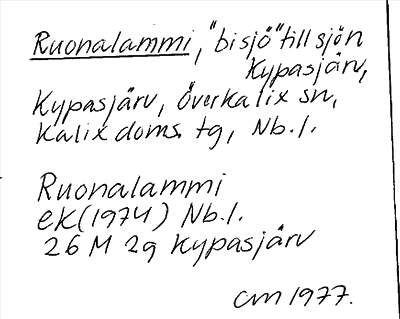 Ruonalammi, "bisjö" till sjön
Kypasjärv,
Kypasjärv, Överkalix sn,
Kalix doms. tg, Nb.l.
Ruonalammi
ek (1974) Nb.l.
26 M 2g Kypasjärv
CM 1977.